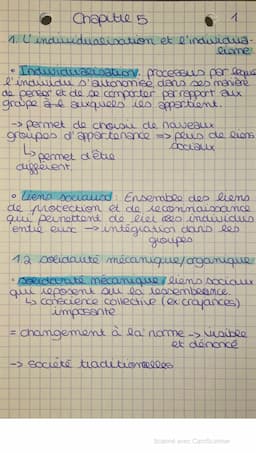 Chapitre 5
1
1. L'individualisation et l'individua-
lisme
• Individualisation: processus par lequel
l'individu s'autonomise dans ses manière
de penser et de se comporter par rapport aux
groupe auxquels il appartient.
→ permet de choisir de nouveaux
groupes d'appartenance => plus de liens
sociaux
↳ permet d'être
différent.
• Liens sociaux: Ensemble des liens
de protection et de reconnaissance
qui permettent de lier des individus
entre eux → intégration dans les
groupes
1.2 solidarité mécanique/organique
• solidarité mécanique: liens sociaux
qui reposent sur la ressemblance.
↳ conscience collective (ex croyances)
imposante
= changement à la norme → visible
et dénoncé
→ société traditionelles
Scanné avec CamScanner